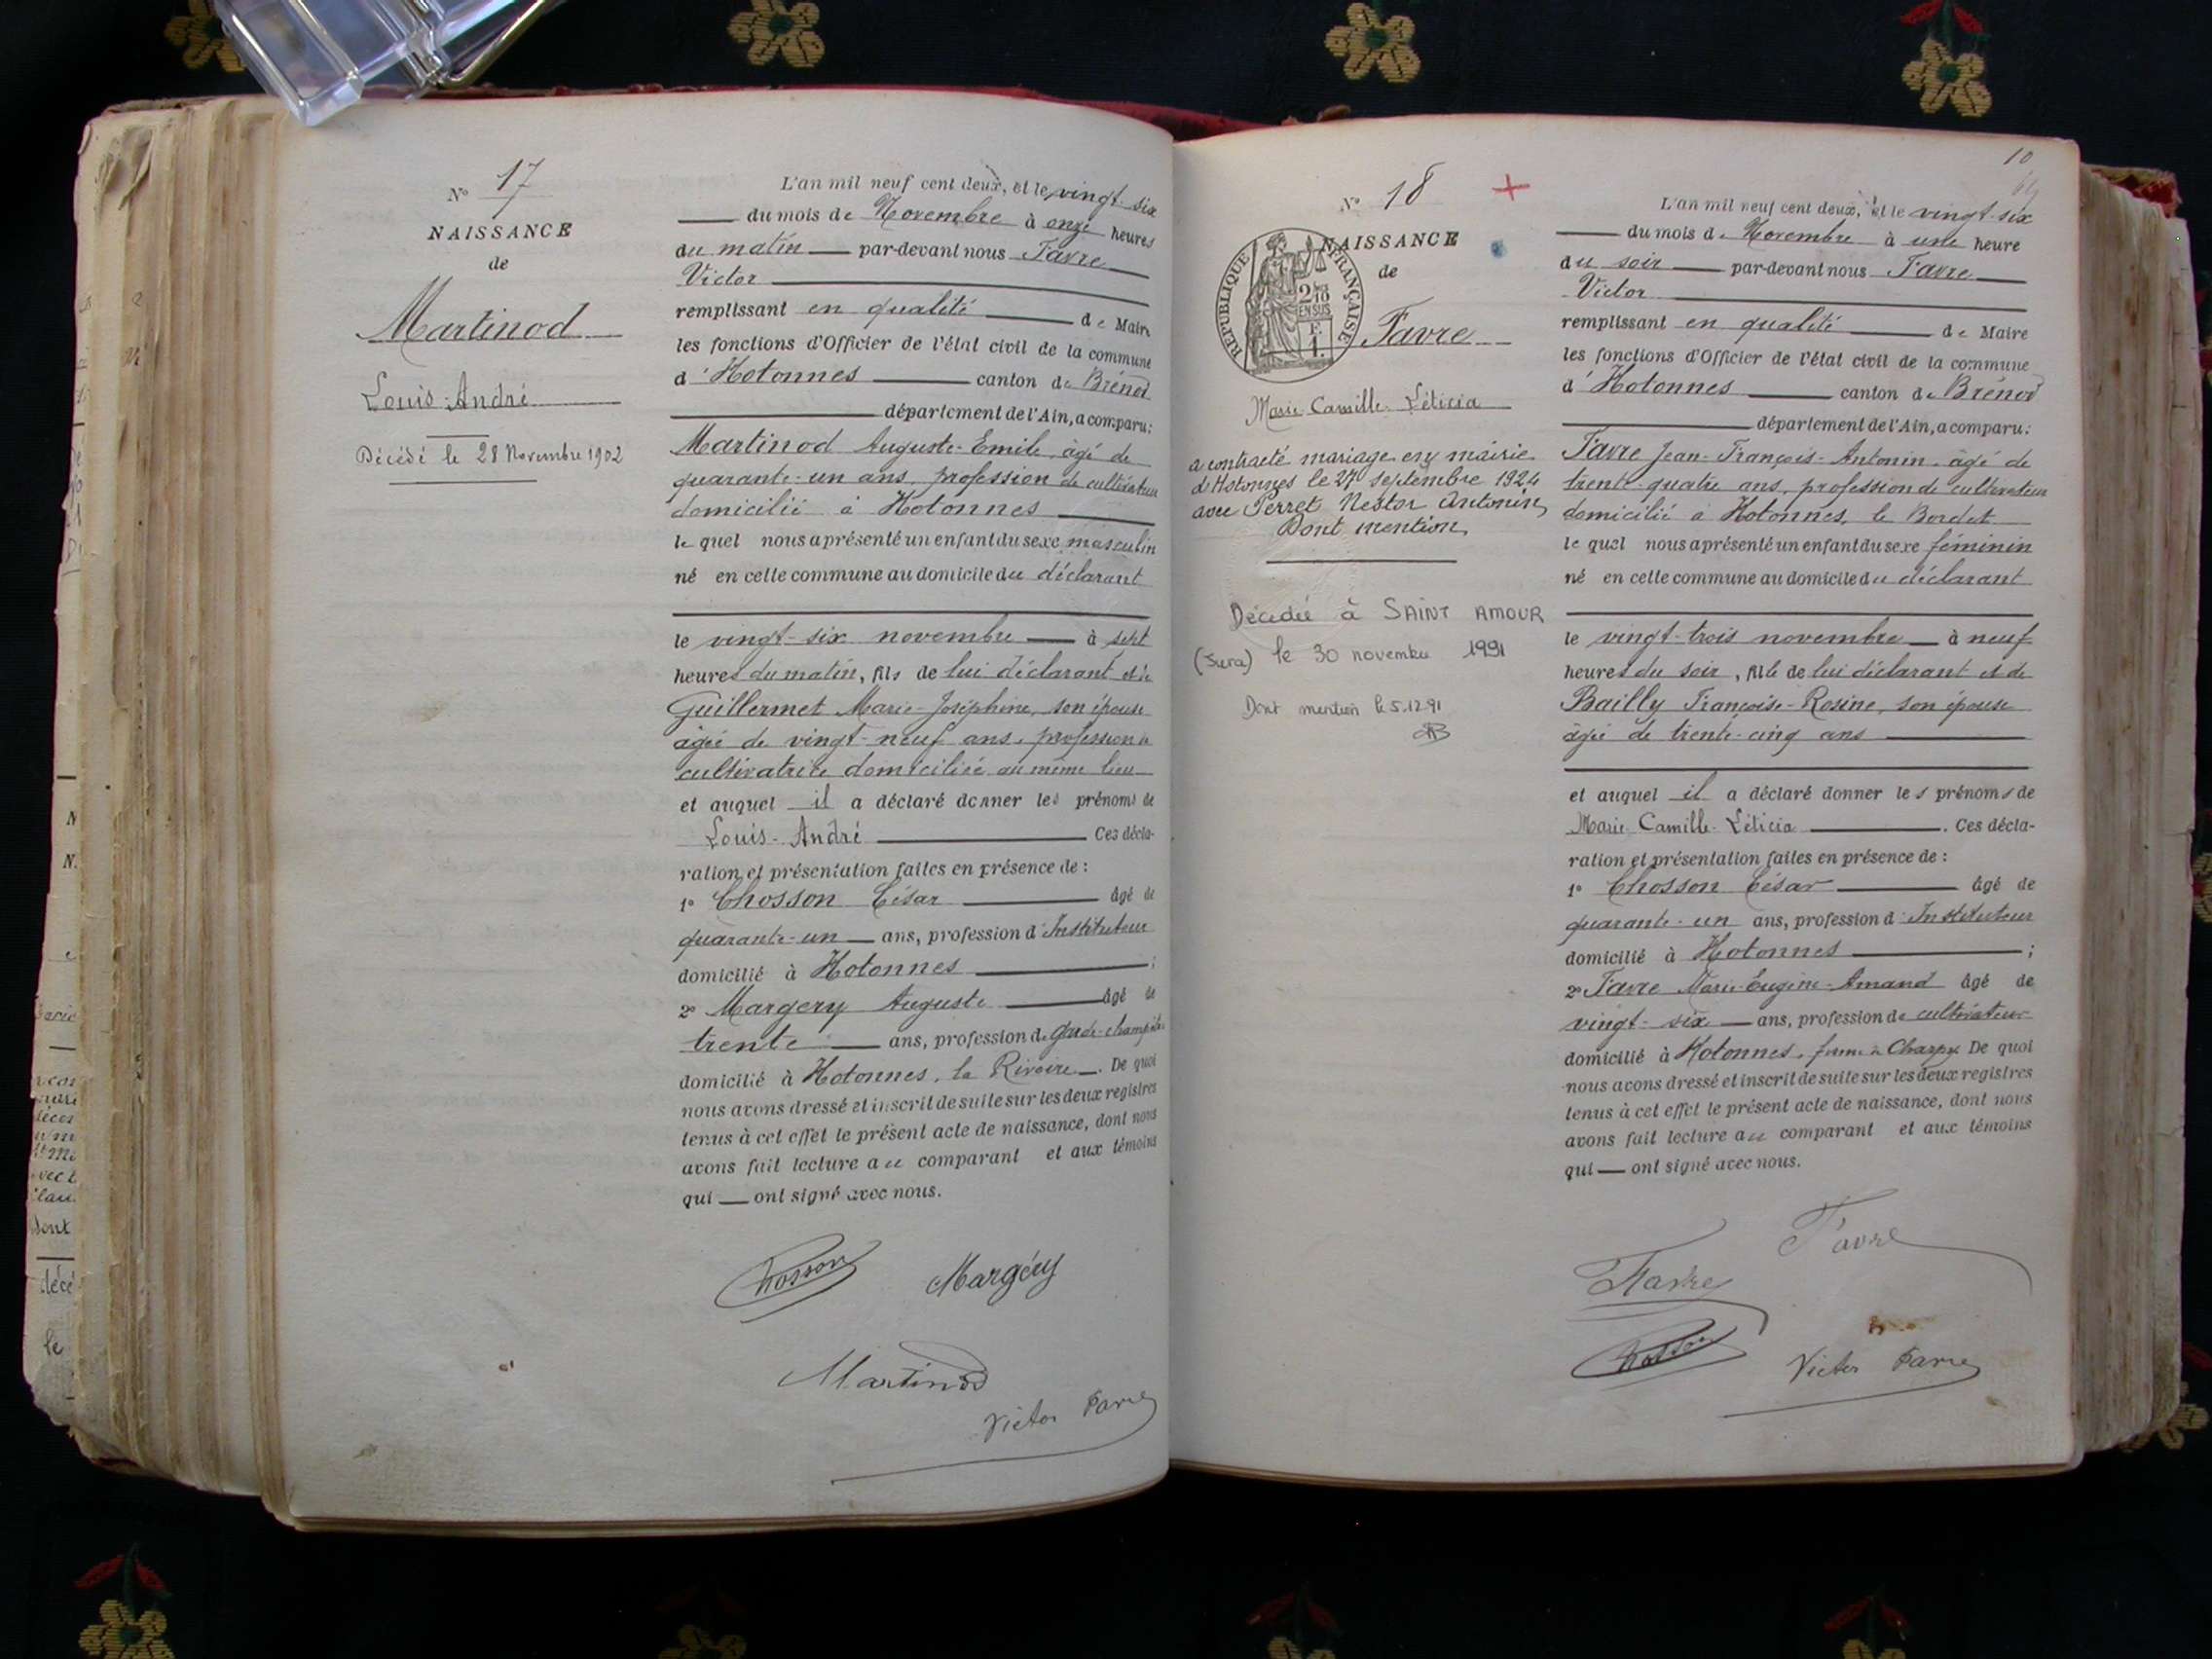 N° 17
NAISSANCE
de
Martinod
Louis-André
Décédé le 28 Novembre 1902
L'an mil neuf cent deux, et le vingt-six
du mois de Novembre à onze heures
du matin par-devant nous Favre
Victor
remplissant en qualité de Maire
les fonctions d'Officier de l'état civil de la commune
d'Hotonnes canton de Brénod
département de l'Ain, a comparu:
Martinod Auguste-Emile, âgé de
quarante-un ans, profession de cultivateur
domicilié à Hotonnes
lequel nous a présenté un enfant du sexe masculin
né en cette commune au domicile du déclarant
le vingt-six novembre à sept
heures du matin, fils de lui déclarant et de
Guillermet Marie-Joséphine, son épouse
âgée de vingt-neuf ans, profession de
cultivatrice domiciliée au même lieu
et auquel il a déclaré donner les prénoms de
Louis-André Ces décla-
ration et présentation faites en présence de :
1° Chosson César âgé de
quarante-un ans, profession d'Instituteur
domicilié à Hotonnes ;
2° Margery Auguste âgé de
trente ans, profession de garde-champêtre
domicilié à Hotonnes, la Rivoire. De quoi
nous avons dressé et inscrit de suite sur les deux registres
tenus à cet effet le présent acte de naissance, dont nous
avons fait lecture au comparant et aux témoins
qui ont signé avec nous.
Chosson Margéry
Martinod
Victor Favre
10
N° 18 +
NAISSANCE
de
RÉPUBLIQUE FRANÇAISE
2/10
EN SUS
F.
1.
Favre
Marie-Camille-Léticia
a contracté mariage en mairie
d'Hotonnes le 27 septembre 1924
avec Perret Nestor Antonin
Dont mention
Décédée à SAINT AMOUR
(Jura) le 30 novembre 1991
Dont mention le 5.12.91
L'an mil neuf cent deux, et le vingt-six
du mois de Novembre à une heure
du soir par-devant nous Favre
Victor
remplissant en qualité de Maire
les fonctions d'Officier de l'état civil de la commune
d'Hotonnes canton de Brénod
département de l'Ain, a comparu:
Favre Jean-François-Antonin, âgé de
trente-quatre ans, profession de cultivateur
domicilié à Hotonnes, le Bordet
lequel nous a présenté un enfant du sexe féminin
né en cette commune au domicile du déclarant
le vingt-trois novembre à neuf
heures du soir, fille de lui déclarant et de
Bailly Françoise-Rosine, son épouse
âgée de trente-cinq ans
et auquel il a déclaré donner les prénoms de
Marie-Camille-Léticia . Ces décla-
ration et présentation faites en présence de :
1° Chosson César âgé de
quarante-un ans, profession d'Instituteur
domicilié à Hotonnes ;
2° Favre Marie-Eugène-Amand âgé de
vingt-six ans, profession de cultivateur
domicilié à Hotonnes, ferme à De quoi
nous avons dressé et inscrit de suite sur les deux registres
tenus à cet effet le présent acte de naissance, dont nous
avons fait lecture au comparant et aux témoins
qui ont signé avec nous.
Favre
Favre
Chosson Victor Favre